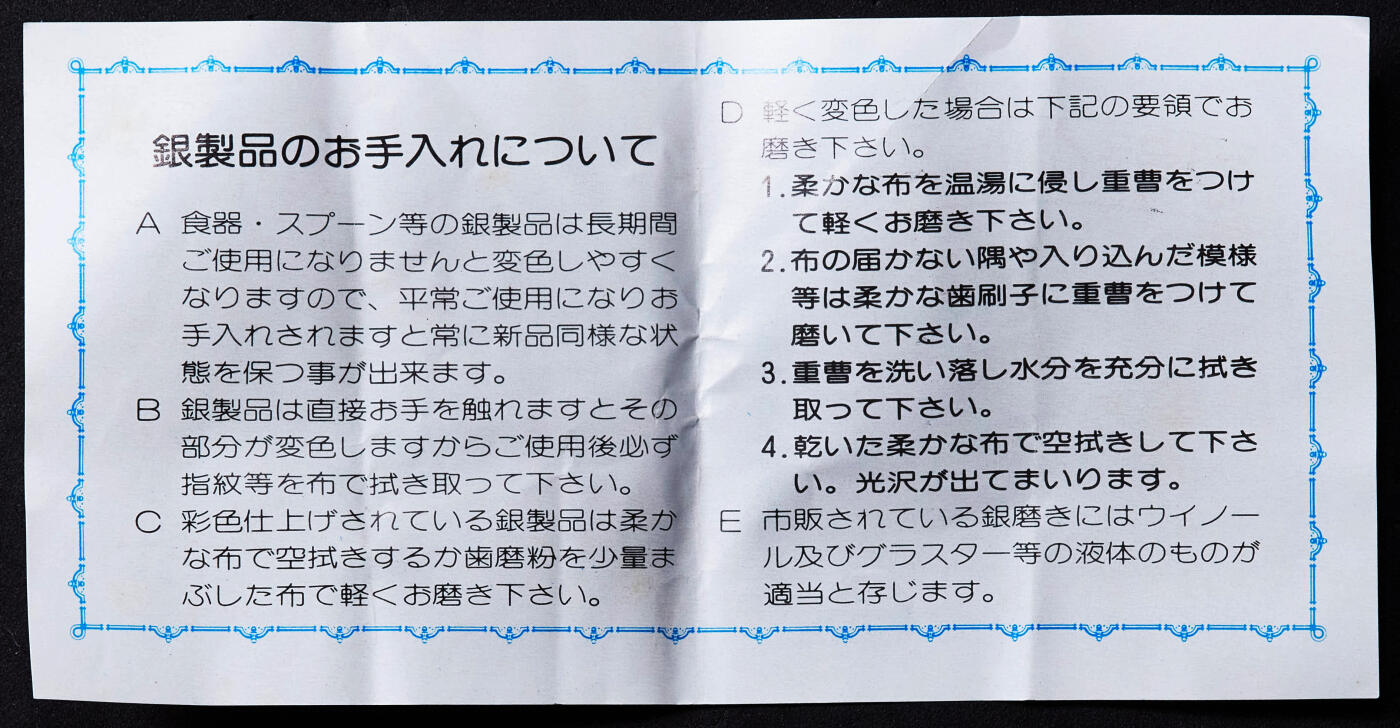 銀製品のお手入れについて
A 食器・スプーン等の銀製品は長期間
ご使用になりませんと変色しやすく
なりますので、平常ご使用になりお
手入れされますと常に新品同様な状
態を保つ事が出来ます。
B 銀製品は直接お手を触れますとその
部分が変色しますからご使用後必ず
指紋等を布で拭き取って下さい。
C 彩色仕上げされている銀製品は柔か
な布で空拭きするか歯磨粉を少量ま
ぶした布で軽くお磨き下さい。
D 軽く変色した場合は下記の要領でお
磨き下さい。
1.柔かな布を温湯に侵し重曹をつけ
て軽くお磨き下さい。
2.布の届かない隅や入り込んだ模様
等は柔かな歯刷子に重曹をつけて
磨いて下さい。
3.重曹を洗い落し水分を充分に拭き
取って下さい。
4.乾いた柔かな布で空拭きして下さ
い。光沢が出てまいります。
E 市販されている銀磨きにはウイノー
ル及びグラスター等の液体のものが
適当と存じます。